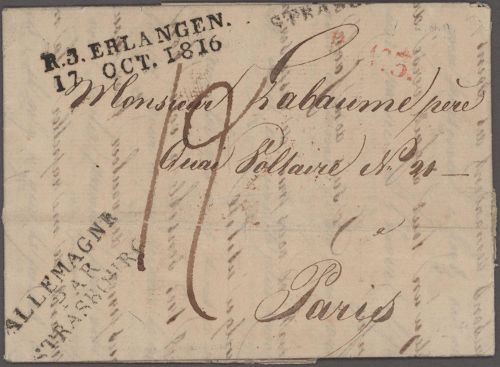 R.3. ERLANGEN.
17 OCT. 1816
STRASB
Monsieur Labaume père
Quai Voltaire No. 21
Paris
ALLEMAGNE
PAR
STRASBOURG